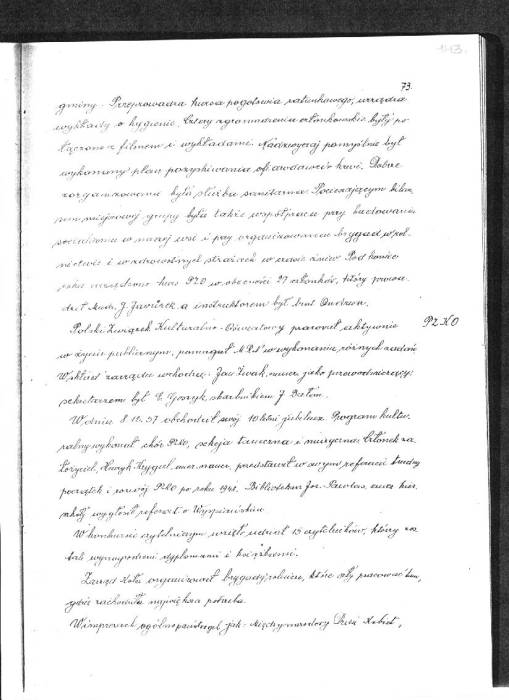 113.
73.
gminy. Przeprowadza kursa pogotowia ratunkowego, urządza
wykłady o hygienie. Cztery zgromadzenia członkowskie były po
łączone z filmem i wykładami. Nadzwyczaj pomyślnie był
wykonany plan pozyskiwania ofiarodawców krwi. Dobrze
zorganizowana była służba sanitarna. Pocieszającym
miejscowej grupy była także współpraca przy budowaniu
socializmu w naszej wsi i przy organizowaniu brygad w rol
nictwie i w zdrowotnych strażach w czasie żniw. Pod koniec
roku urządzono kurs PZO w obecności 27 członków, który prowa
dził Mudr. J. a instruktorem był brat
Polski Związek Kulturalno-Oświatowy pracował aktywnie
PZKO
w życiu publicznym, pomagał MRN w wykonaniu różnych zadań.
W skład zarządu wchodzą: Jan naucz. jako przewodniczący,
sekretarzem był skarbnikiem J.
W dniu 8.12.57 obchodził swój 10 letni jubileusz. Program kultu
ralny wykonał chór PZKO, sekcja taneczna i muzyczna. Członek za
łożyciel, Henryk naucz. przedstawił w swym referacie trudny
początek i rozwój PZKO po roku 194. Bibliotekarz Joz. Pawlas, emer. kier.
szkoły wygłosił referat o Wyspiańskim.
W konkursie czytelniczym wzięło udział 15 czytelników, którzy zo
stali wynagrodzeni dyplomami i książkami.
Zarząd Koła organizował brygady rolnicze, które szły pracować tam,
gdzie zachodziła największa potrzeba.
W imprezach ogólnopaństw. jak: Międzynarodowy Dzień Kobiet,